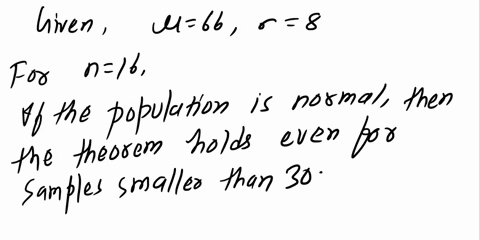 Given, μ=66, σ=8
For n=16,
If the population is normal, then
the theorem holds even for
samples smaller than 30.